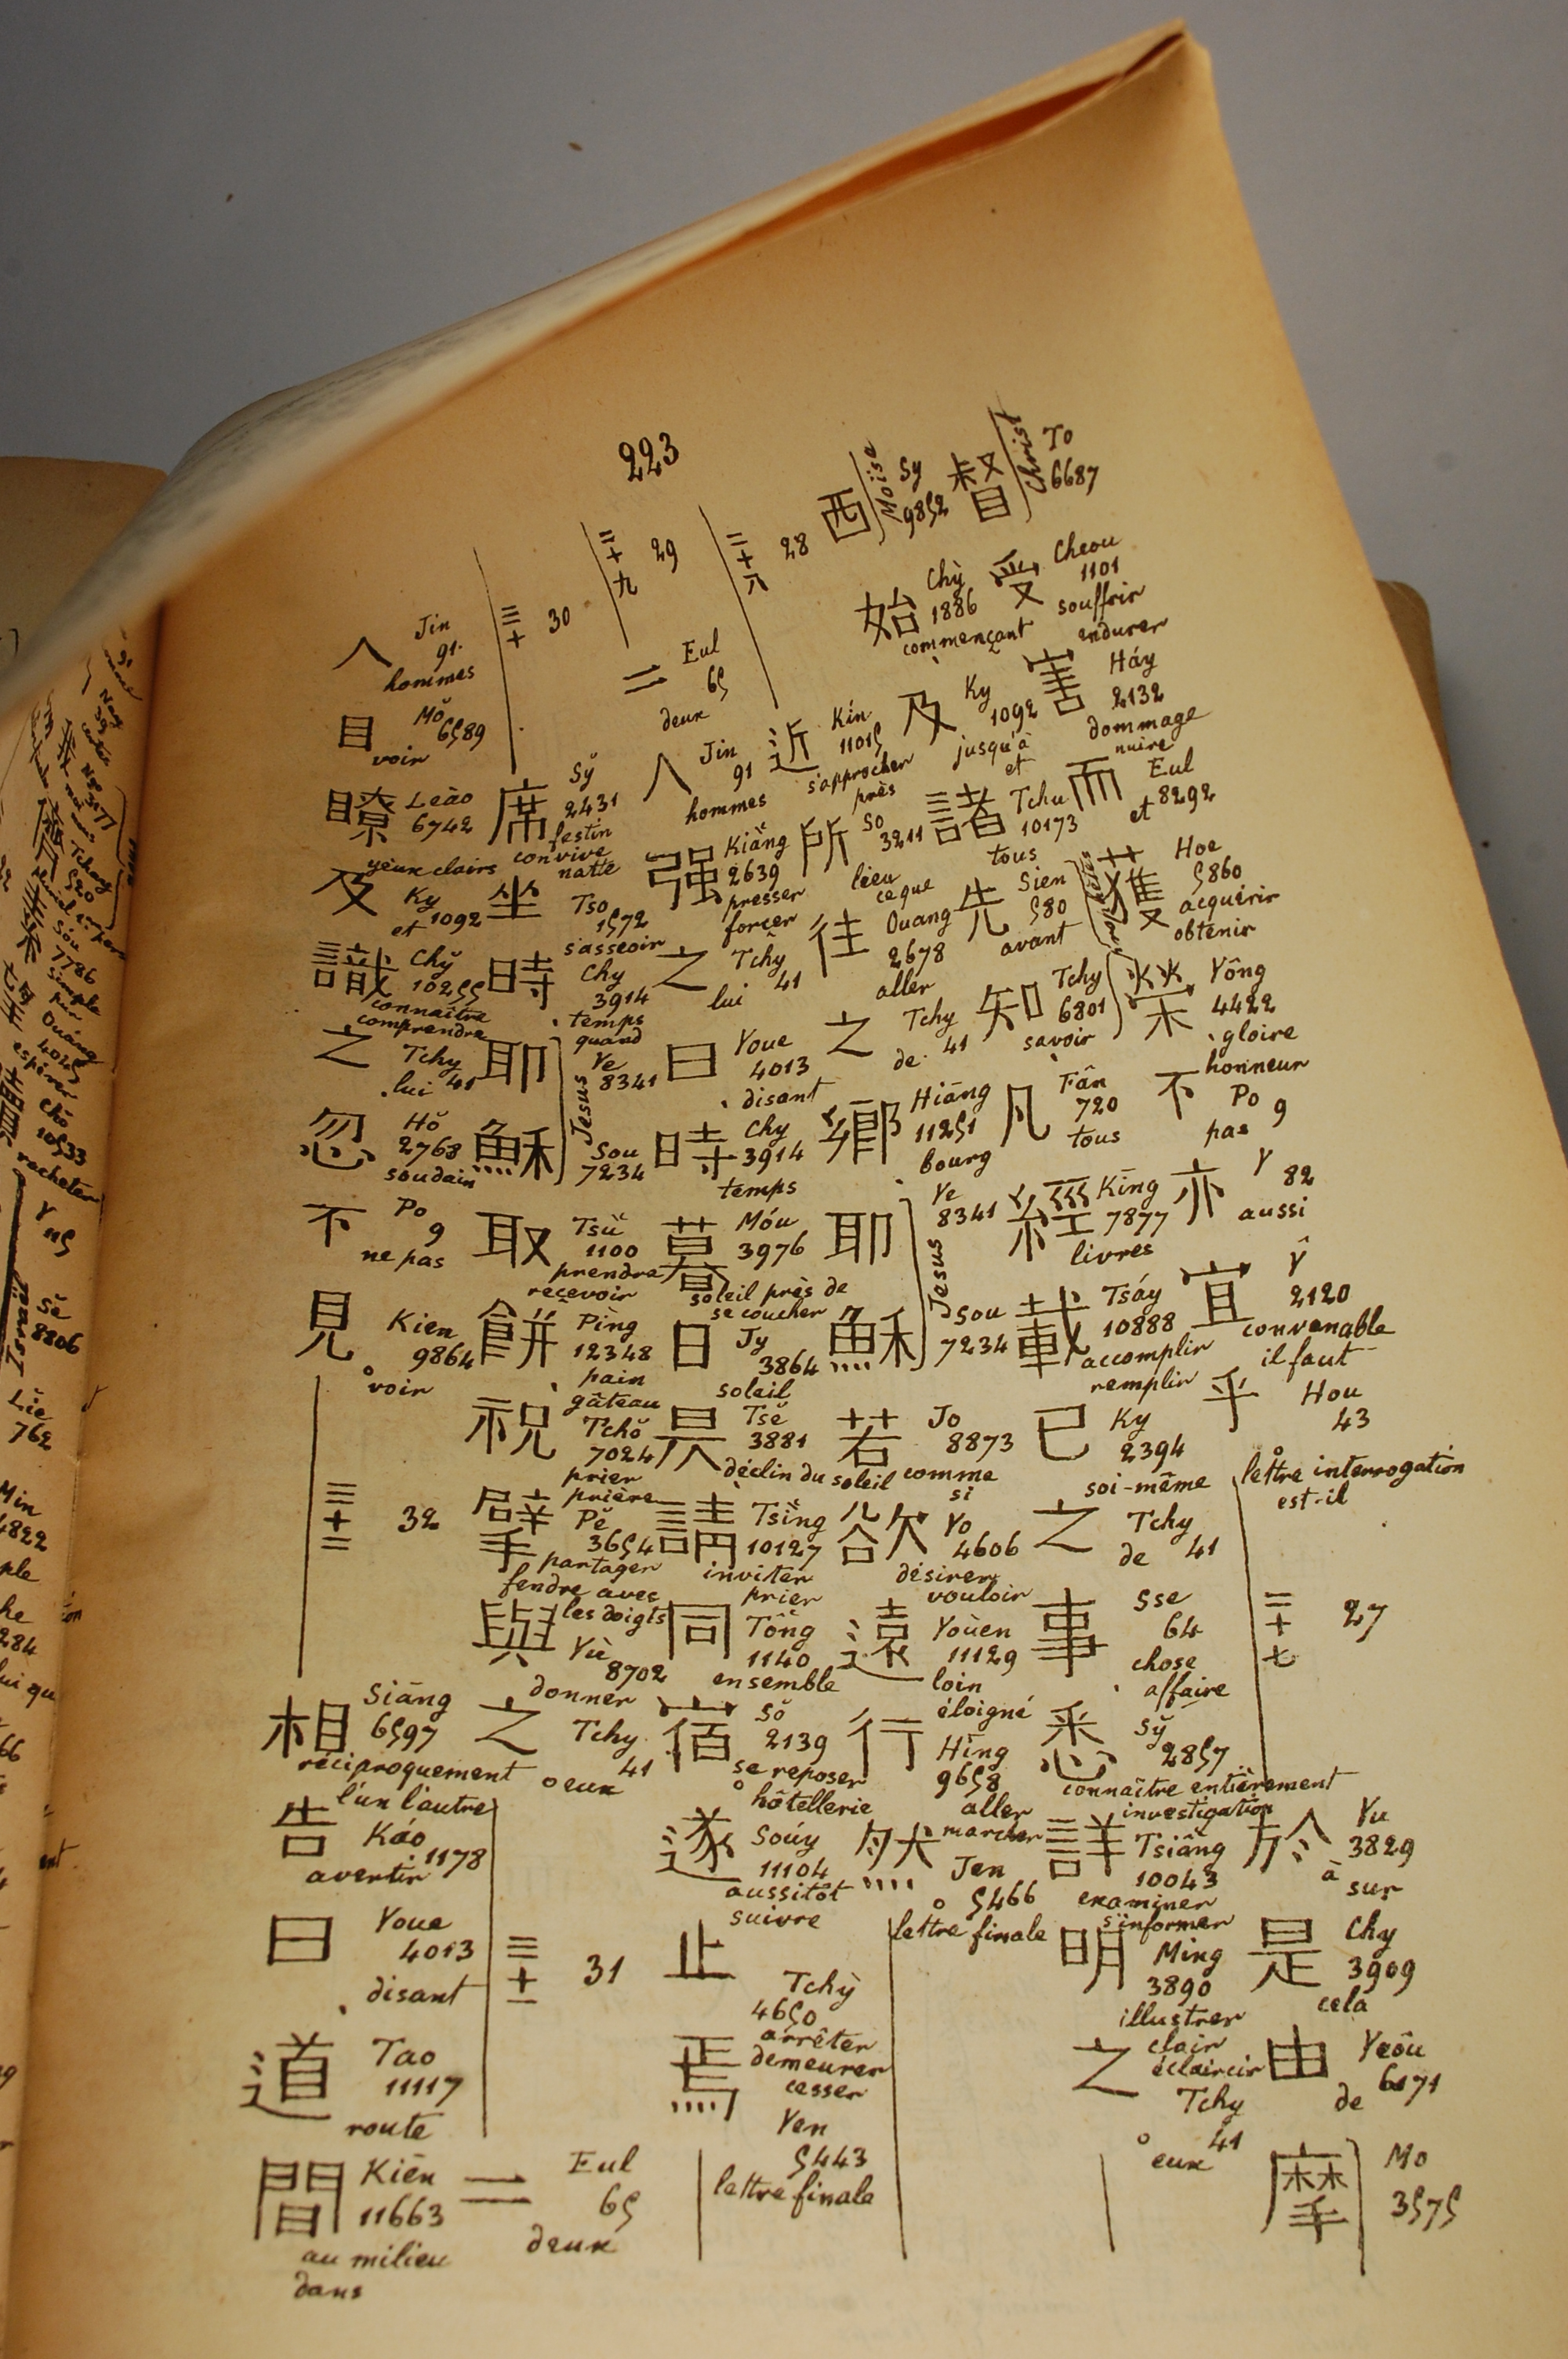 223
督 To 6687 Christ
受 Cheou 1101 souffrir endurer
害 Háy 2132 dommage nuire
而 Eul 8292 et
獲 Hoe 5860 acquérir obtenir
榮 Yông 4422 gloire honneur
不 Po 9 pas
亦 Y 82 aussi
宜 Ŷ 2120 convenable il faut
乎 Hou 43 lettre interrogation est-il
二十七 27
於 Yu 3829 à sur
是 Chy 3909 cela
由 Yeôu 6171 de
摩 Mo 3575
西 Sy 9852 Moise
始 Chỳ 1886 commençant
及 Ky 1092 jusqu'à et
諸 Tchu 10173 tous
先 Sien 580 avant
知 Tchy 6801 savoir
凡 Fân 720 tous
經 King 7877 livres
載 Tsáy 10888 accomplir remplir
已 Ky 2394 soi-même
之 Tchy 41 de
事 Sse 64 chose affaire
悉 Sy̆ 2857 connaître entièrement investigation
詳 Tsiâng 10043 examiner s'informer
明 Ming 3890 illustrer clair éclaircir
之 Tchy 41 eux
二十八 28
近 Kín 11015 s'approcher près
所 So 3211 lieu ce que
往 Ouang 2678 aller
之 Tchy 41 de
鄉 Hiāng 11251 bourg
耶 Ye 8341
穌 Sou 7234 Jesus
若 Jo 8873 comme si
欲 Yo 4606 désirer vouloir
遠 Youèn 11129 loin éloigné
行 Hing 9658 aller marcher
然 Jen 5466 lettre finale
二十九 29
二 Eul 65 deux
人 Jin 91 hommes
强 Kiăng 2639 presser forcer
之 Tchy 41 lui
曰 Youe 4013 disant
時 Chy 3914 temps
暮 Móu 3976 soleil près de se coucher
日 Jy 3864 soleil
昃 Tsĕ 3881 déclin du soleil
請 Tsĭng 10127 inviter prier
同 Tông 1140 ensemble
宿 Sŏ 2139 se reposer hôtellerie
遂 Soúy 11104 aussitôt suivre
止 Tchỳ 4650 arrêter demeurer cesser
焉 Yen 5443 lettre finale
三十 30
席 Sy̆ 2431 festin convive natte
坐 Tso 1572 s'asseoir
時 Chy 3914 temps quand
耶 Ye 8341
穌 Sou 7234 Jesus
取 Tsŭ 1100 prendre recevoir
餅 Pìng 12348 pain gâteau
祝 Tchŏ 7024 prier prière
擘 Pĕ 3654 partager fendre avec les doigts
與 Yù 8702 donner
之 Tchy 41 eux
三十一 31
二 Eul 65 deux
人 Jin 91 hommes
目 Mŏ 6589 voir
瞭 Leào 6742 yeux clairs
及 Ky 1092 et
識 Chy̆ 10255 connaître comprendre
之 Tchy 41 lui
忽 Hŏ 2768 soudain
不 Po 9 ne pas
見 Kien 9864 voir
三十二 32
相 Siāng 6597 réciproquement l'un l'autre
告 Káo 1178 avertir
曰 Youe 4013 disant
道 Tao 11117 route
間 Kiēn 11663 au milieu dans